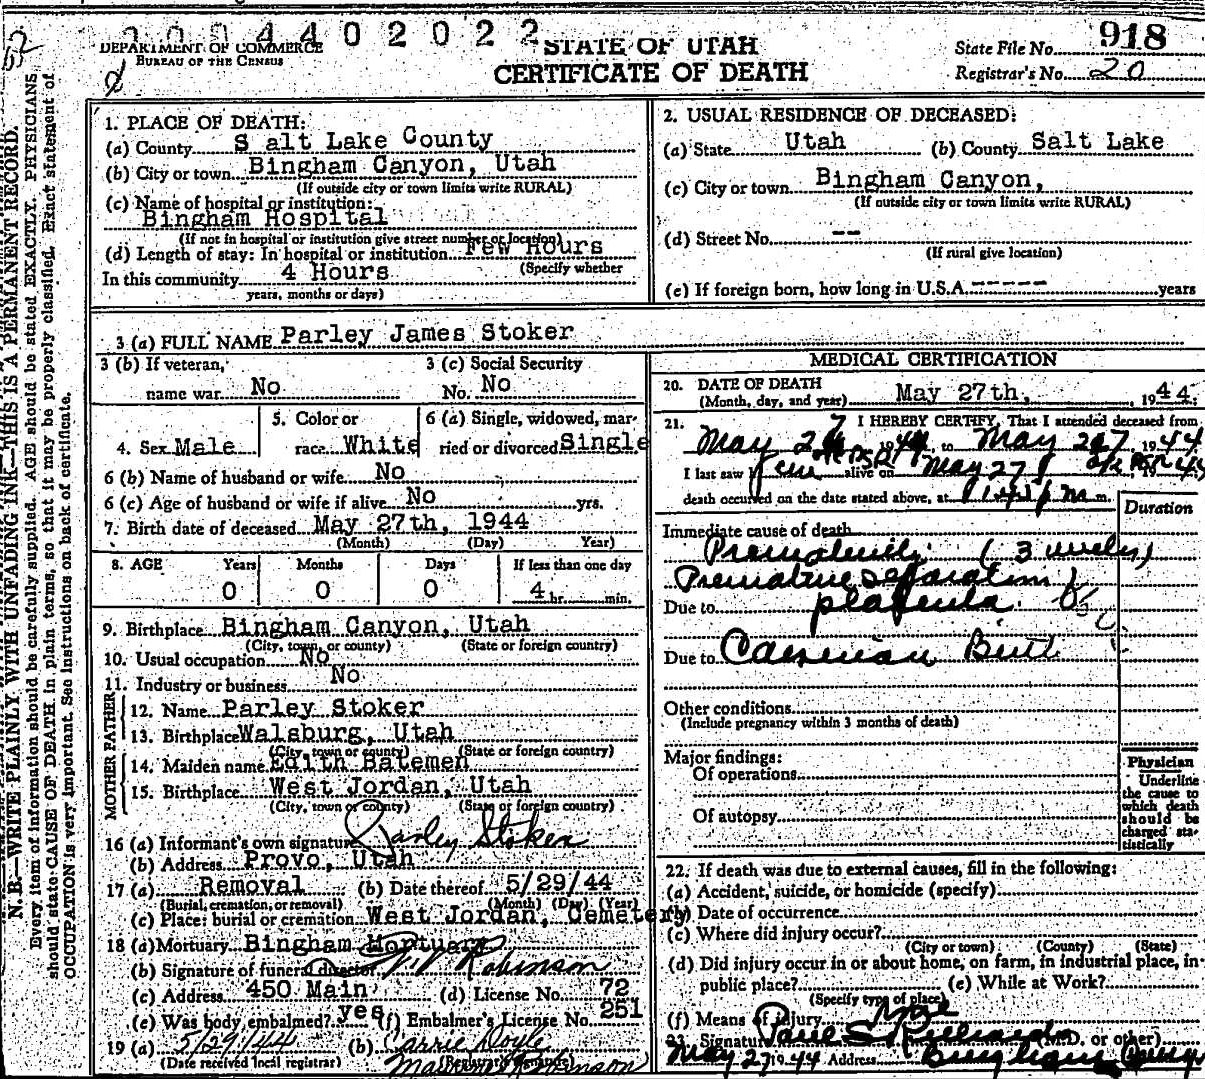 004402022
DEPARTMENT OF COMMERCE
BUREAU OF THE CENSUS
STATE OF UTAH
CERTIFICATE OF DEATH
State File No. 918
Registrar's No. 20
N. B.—WRITE PLAINLY WITH UNFADING INK—THIS IS A PERMANENT RECORD.
Every item of information should be carefully supplied. AGE should be stated EXACTLY. PHYSICIANS
should state CAUSE OF DEATH in plain terms, so that it may be properly classified. Exact statement of
OCCUPATION is very important. See instructions on back of certificate.
1. PLACE OF DEATH:
(a) County S alt Lake County
(b) City or town Bingham Canyon, Utah
(If outside city or town limits write RURAL)
(c) Name of hospital or institution:
Bingham Hospital
(If not in hospital or institution give street number or location)
(d) Length of stay: In hospital or institution Few Hours
(Specify whether
In this community 4 Hours
years, months or days)
2. USUAL RESIDENCE OF DECEASED:
(a) State Utah (b) County Salt Lake
(c) City or town Bingham Canyon,
(If outside city or town limits write RURAL)
(d) Street No. --
(If rural give location)
(e) If foreign born, how long in U.S.A. ----- years
3 (a) FULL NAME Parley James Stoker
3 (b) If veteran, 3 (c) Social Security
name war No No. No
4. Sex Male 5. Color or race White 6 (a) Single, widowed, married or divorced Single
6 (b) Name of husband or wife No
6 (c) Age of husband or wife if alive No yrs.
7. Birth date of deceased May 27th, 1944
(Month) (Day) Year)
8. AGE Years Months Days If less than one day
0 0 0 4 hr. min.
9. Birthplace Bingham Canyon, Utah
(City, town, or county) (State or foreign country)
10. Usual occupation No
11. Industry or business No
FATHER
12. Name Parley Stoker
13. Birthplace Walsburg, Utah
(City, town or county) (State or foreign country)
MOTHER
14. Maiden name Edith Batemen
15. Birthplace West Jordan, Utah
(City, town or county) (State or foreign country)
16 (a) Informant's own signature Parley Stoker
(b) Address Provo, Utah
17 (a) Removal (b) Date thereof 5/29/44
(Burial, cremation, or removal) (Month) (Day) (Year)
(c) Place: burial or cremation West Jordan, Cemetery
18 (a) Mortuary Bingham Mortuary
(b) Signature of funeral director Robinson
(c) Address 450 Main (d) License No. 72
(e) Was body embalmed? yes (f) Embalmer's License No. 251
19 (a) 5/29/44 (b) Carrie Doyle
(Date received local registrar) (Registrar's signature)
MEDICAL CERTIFICATION
20. DATE OF DEATH
(Month, day, and year) May 27th, 1944.
21. I HEREBY CERTIFY, That I attended deceased from
May 27 1944 to May 27 1944
I last saw alive on May 27
death occurred on the date stated above, at m.
Duration
Immediate cause of death
Prematurity (3 weeks)
Premature separation
Due to placenta
Due to Caeserian Birth
Other conditions
(Include pregnancy within 3 months of death)
Major findings:
Of operations
Of autopsy
Physician
Underline
the cause to
which death
should be
charged sta-
tistically
22. If death was due to external causes, fill in the following:
(a) Accident, suicide, or homicide (specify)
(b) Date of occurrence
(c) Where did injury occur?
(City or town) (County) (State)
(d) Did injury occur in or about home, on farm, in industrial place, in
public place? (e) While at Work?
(Specify type of place)
(f) Means of injury
23. Signature Paul S. Richards (M.D. or other)
May 27 1944 Address Bingham Canyon